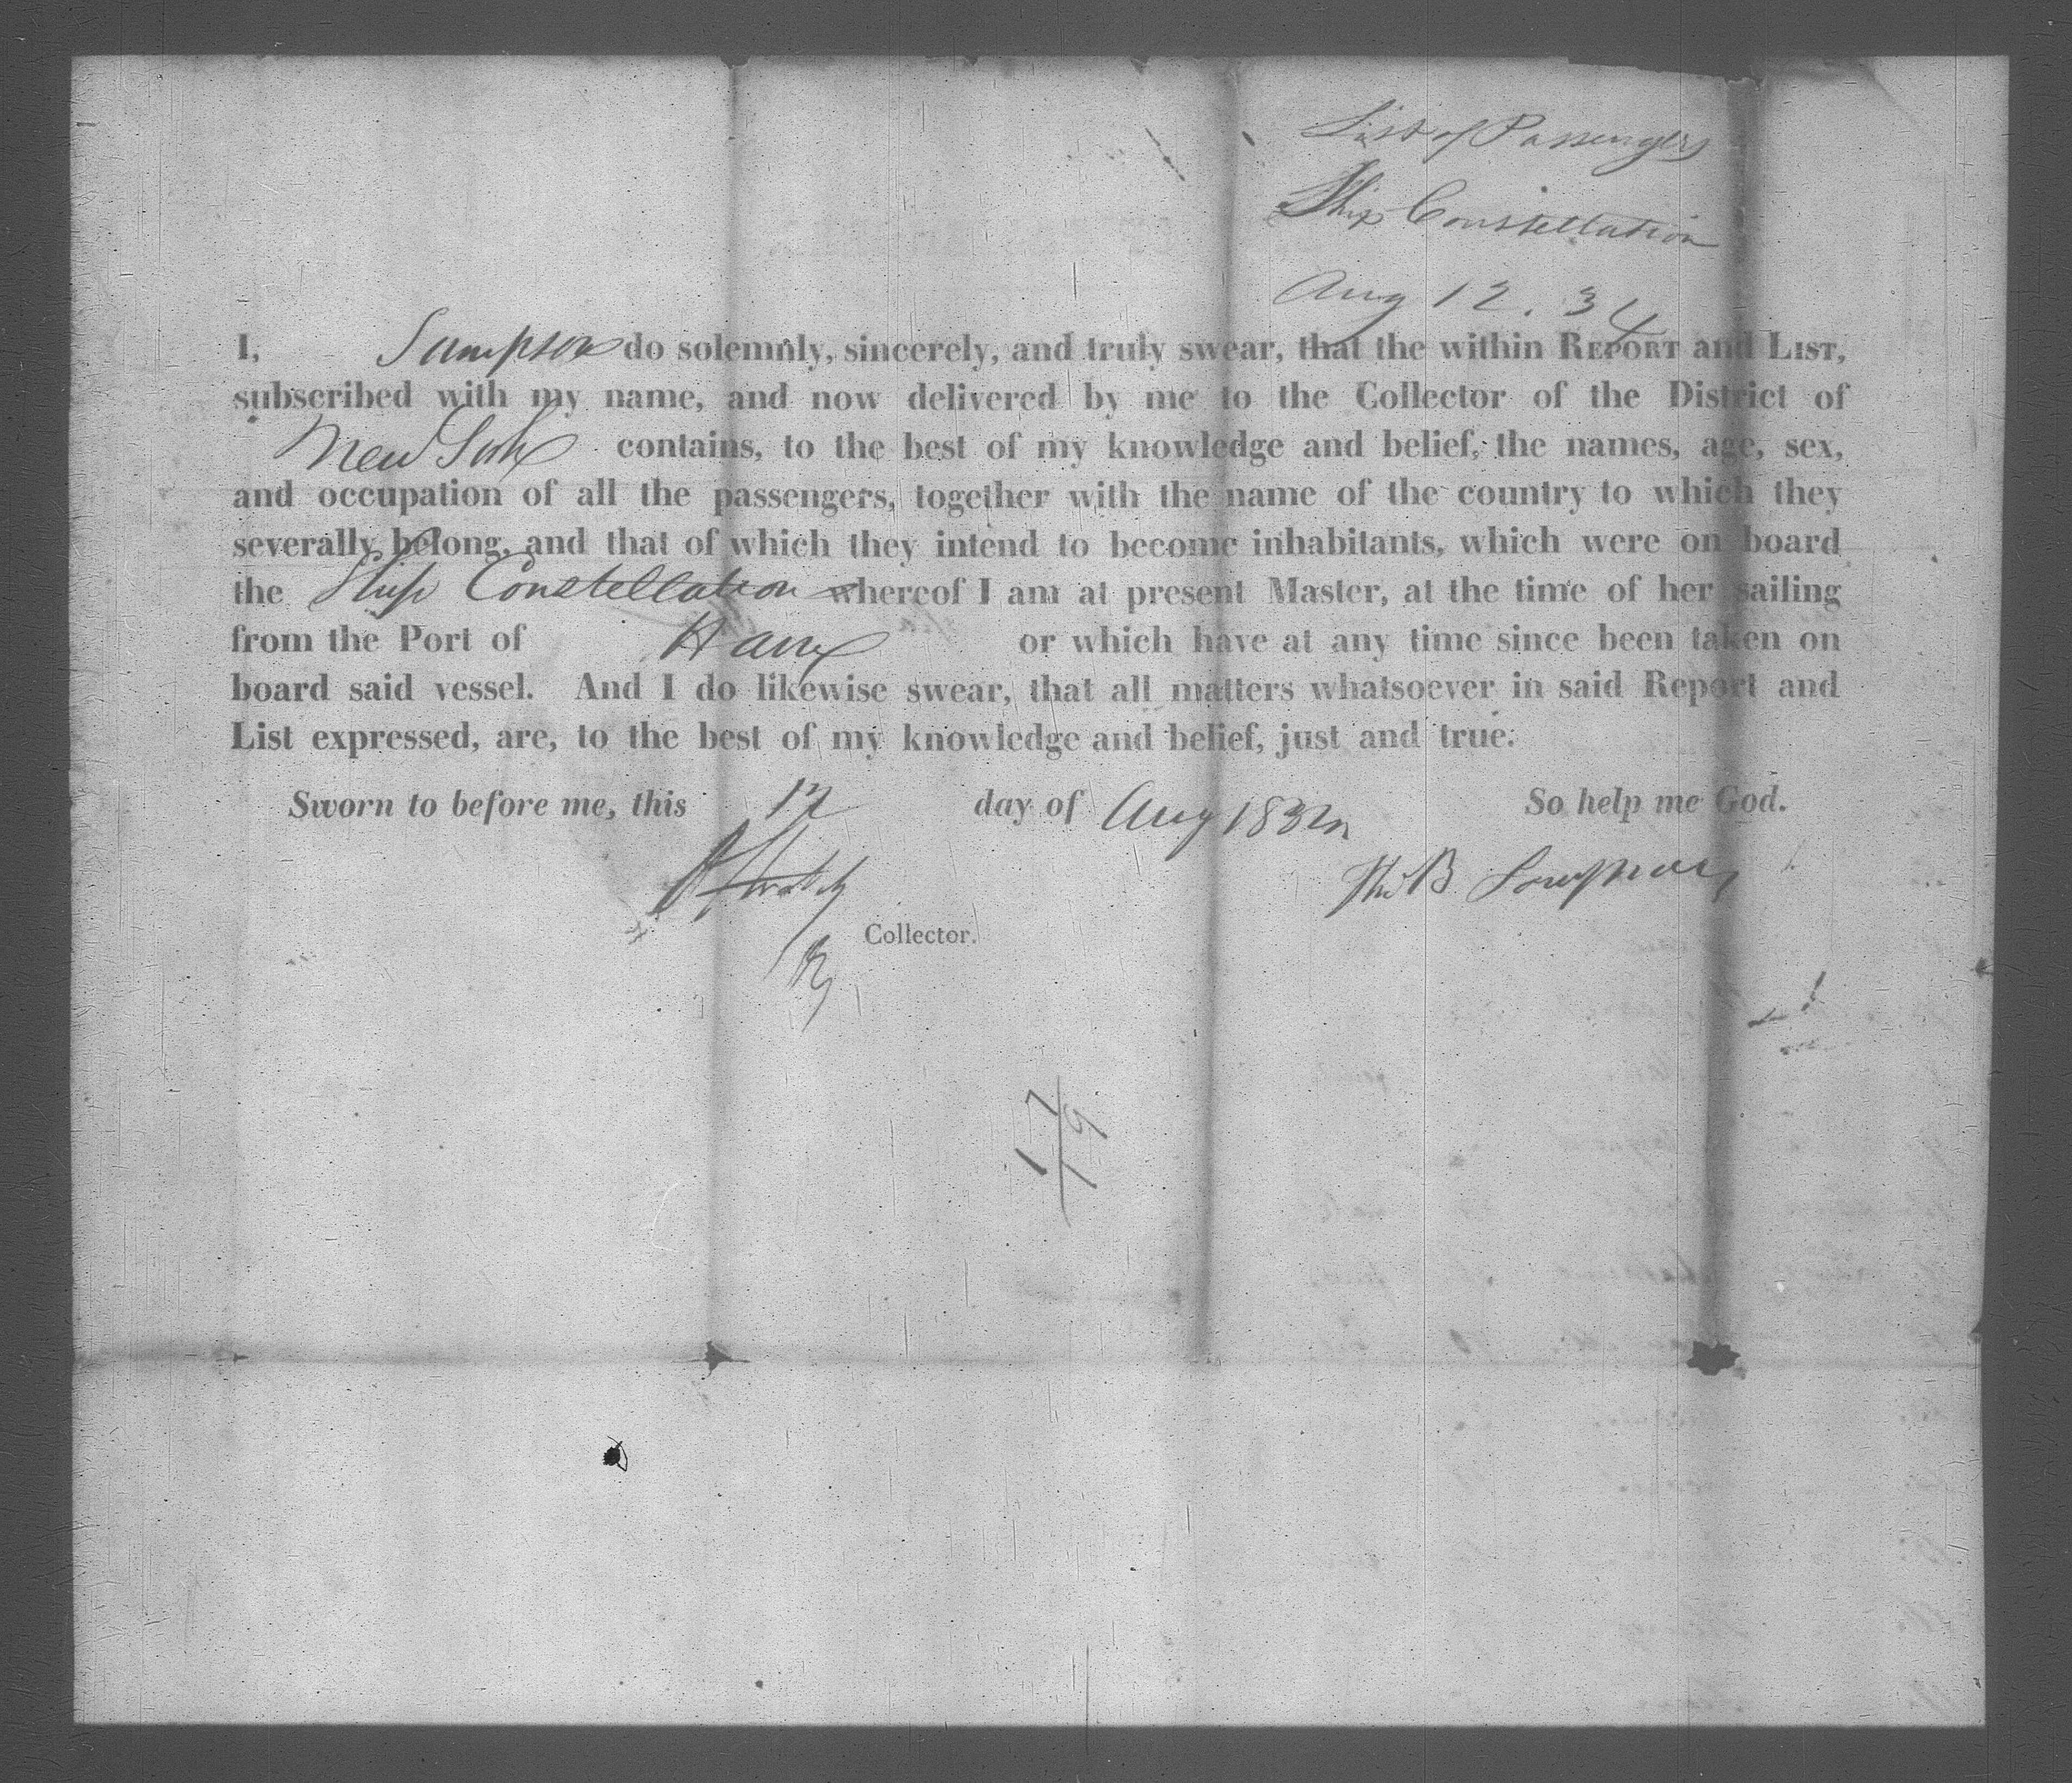 List of Passengers
Ship Constellation
Aug 12. 34
I, Sampson do solemnly, sincerely, and truly swear, that the within REPORT and LIST,
subscribed with my name, and now delivered by me to the Collector of the District of
New York contains, to the best of my knowledge and belief, the names, age, sex,
and occupation of all the passengers, together with the name of the country to which they
severally belong, and that of which they intend to become inhabitants, which were on board
the Ship Constellation whereof I am at present Master, at the time of her sailing
from the Port of Havre or which have at any time since been taken on
board said vessel. And I do likewise swear, that all matters whatsoever in said Report and
List expressed, are, to the best of my knowledge and belief, just and true.
Sworn to before me, this 12 day of Aug 1834 So help me God.
B Sampson
Collector.